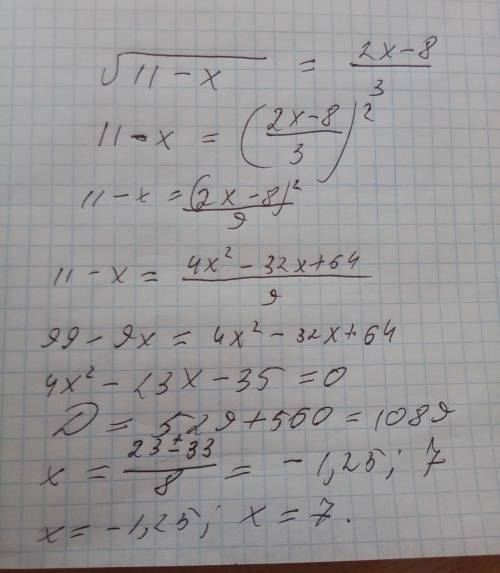 √11 - x = 2x-8/3
11 - x = (2x-8/3)²
11 - x = (2x-8)²/9
11 - x = 4x² - 32x+64/9
99 - 9x = 4x² - 32x+64
4x² - 23x - 35 = 0
D = 529+560 = 1089
x = 23±33/8 = -1,25; 7
x = -1,25; x = 7.